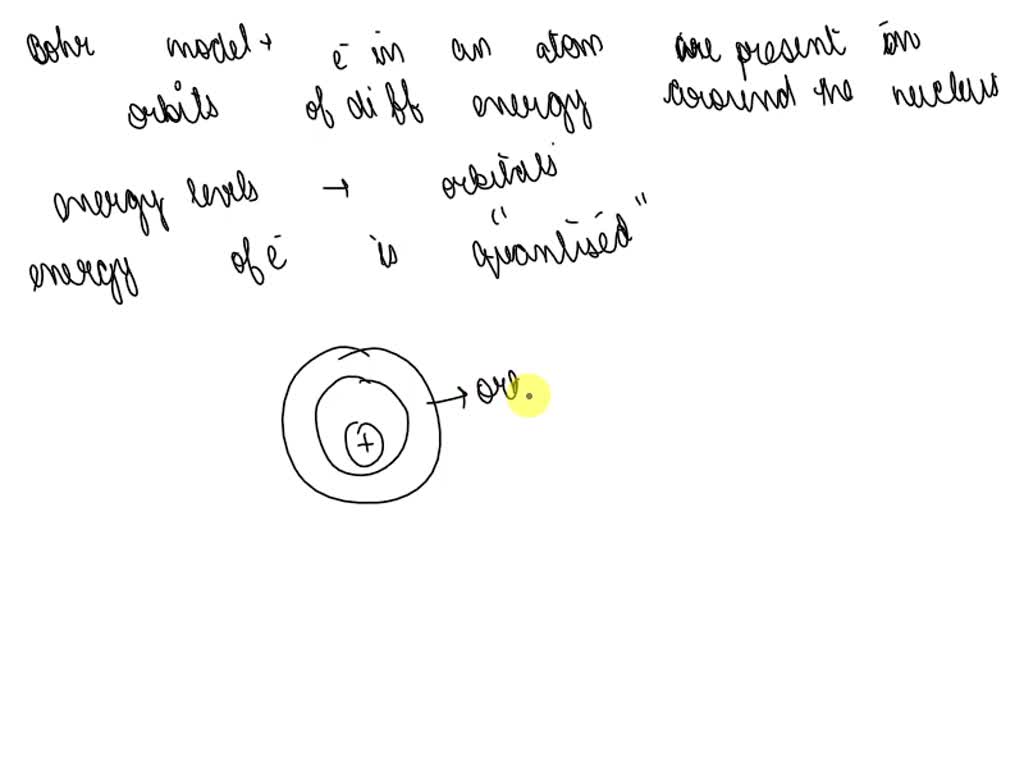 Bohr model → e⁻ in an atom are present in
orbits of diff energy around the nucleus
energy levels → orbitals
energy of e⁻ is "quantised"
+ → orb